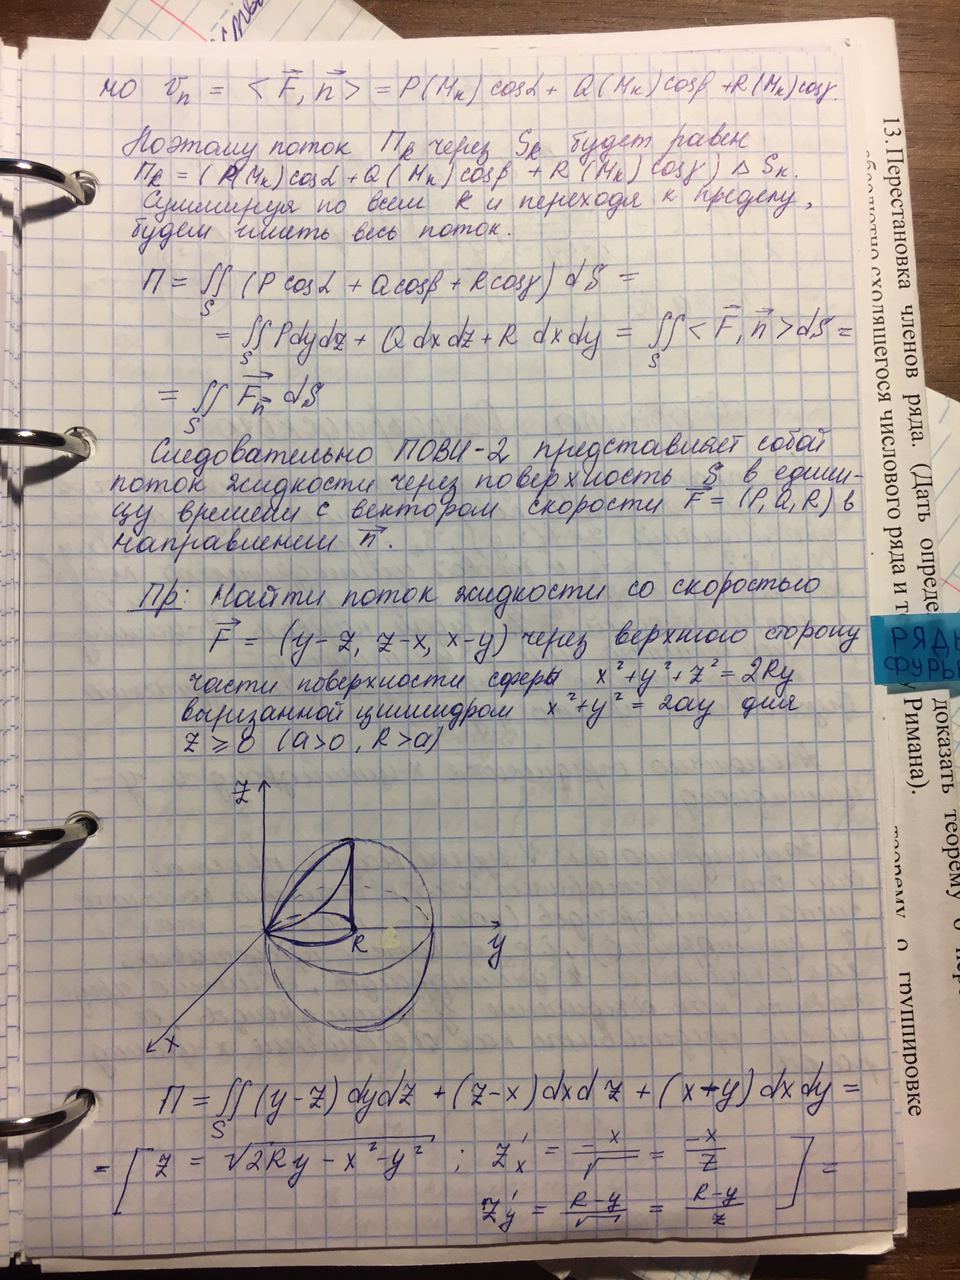 но Vₙ = <F⃗, n⃗> = P(Mₖ) cosα + Q(Mₖ) cosβ + R(Mₖ) cosγ.
Поэтому поток Пₖ через Sₖ будет равен
Пₖ = (P(Mₖ) cosα + Q(Mₖ) cosβ + R(Mₖ) cosγ) ΔSₖ.
Суммируя по всем k и переходя к пределу,
будем иметь весь поток.
П = ∬ (P cosα + Q cosβ + R cosγ) dS =
S
= ∬ P dy dz + Q dx dz + R dx dy = ∬ <F⃗, n⃗> dS =
S S
= ∬ F⃗ₙ⃗ dS
S
Следовательно ПОВИ-2 представляет собой
поток жидкости через поверхность S в едини-
цу времени с вектором скорости F⃗ = (P, Q, R) в
направлении n⃗.
Пр: Найти поток жидкости со скоростью
F⃗ = (y-z, z-x, x-y) через верхнюю сторону
части поверхности сферы x²+y²+z²=2Ry
вырезанной цилиндром x²+y²=2ay для
z ≥ 0 (a>0, R>a)
z
R
y
x
П = ∬ (y-z) dy dz + (z-x) dx dz + (x-y) dx dy =
S
= [ z = √(2Ry - x² - y²) ; z'ₓ = -x/√ = -x/z
z'ᵧ = R-y/√ = R-y/z ] =
13. Перестановка членов ряда. (Дать опреде
сходящегося числового ряда и т
доказать теорему о пере
Римана).
теорему о группировке
РЯДЫ
ФУРЬЕ